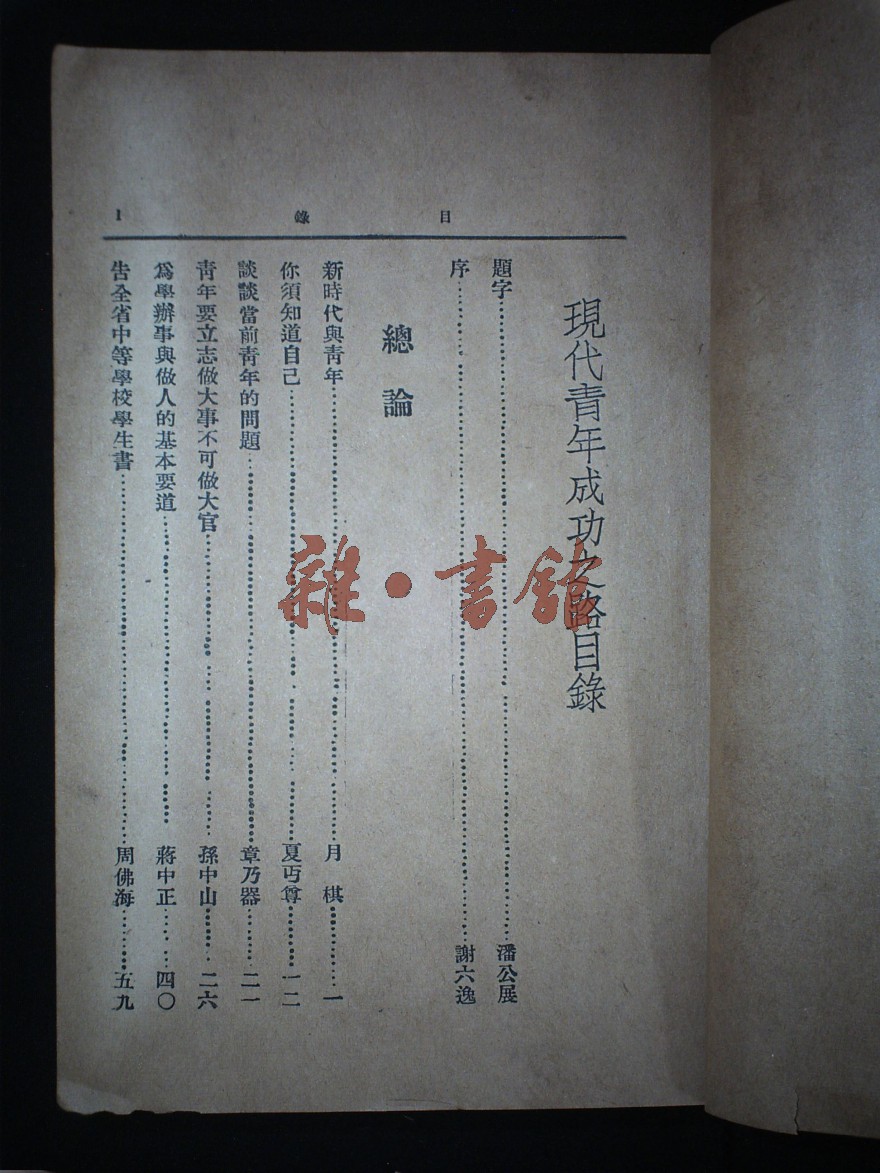 目錄 1
現代青年成功之路目錄
題字……潘公展
序……謝六逸
總論
新時代與青年……月棋……一
你須知道自己……夏丏尊……一二
談談當前青年的問題……章乃器……二一
青年要立志做大事不可做大官……孫中山……二六
爲學辦事與做人的基本要道……蔣中正……四〇
告全省中等學校學生書……周佛海……五九
雜·書館